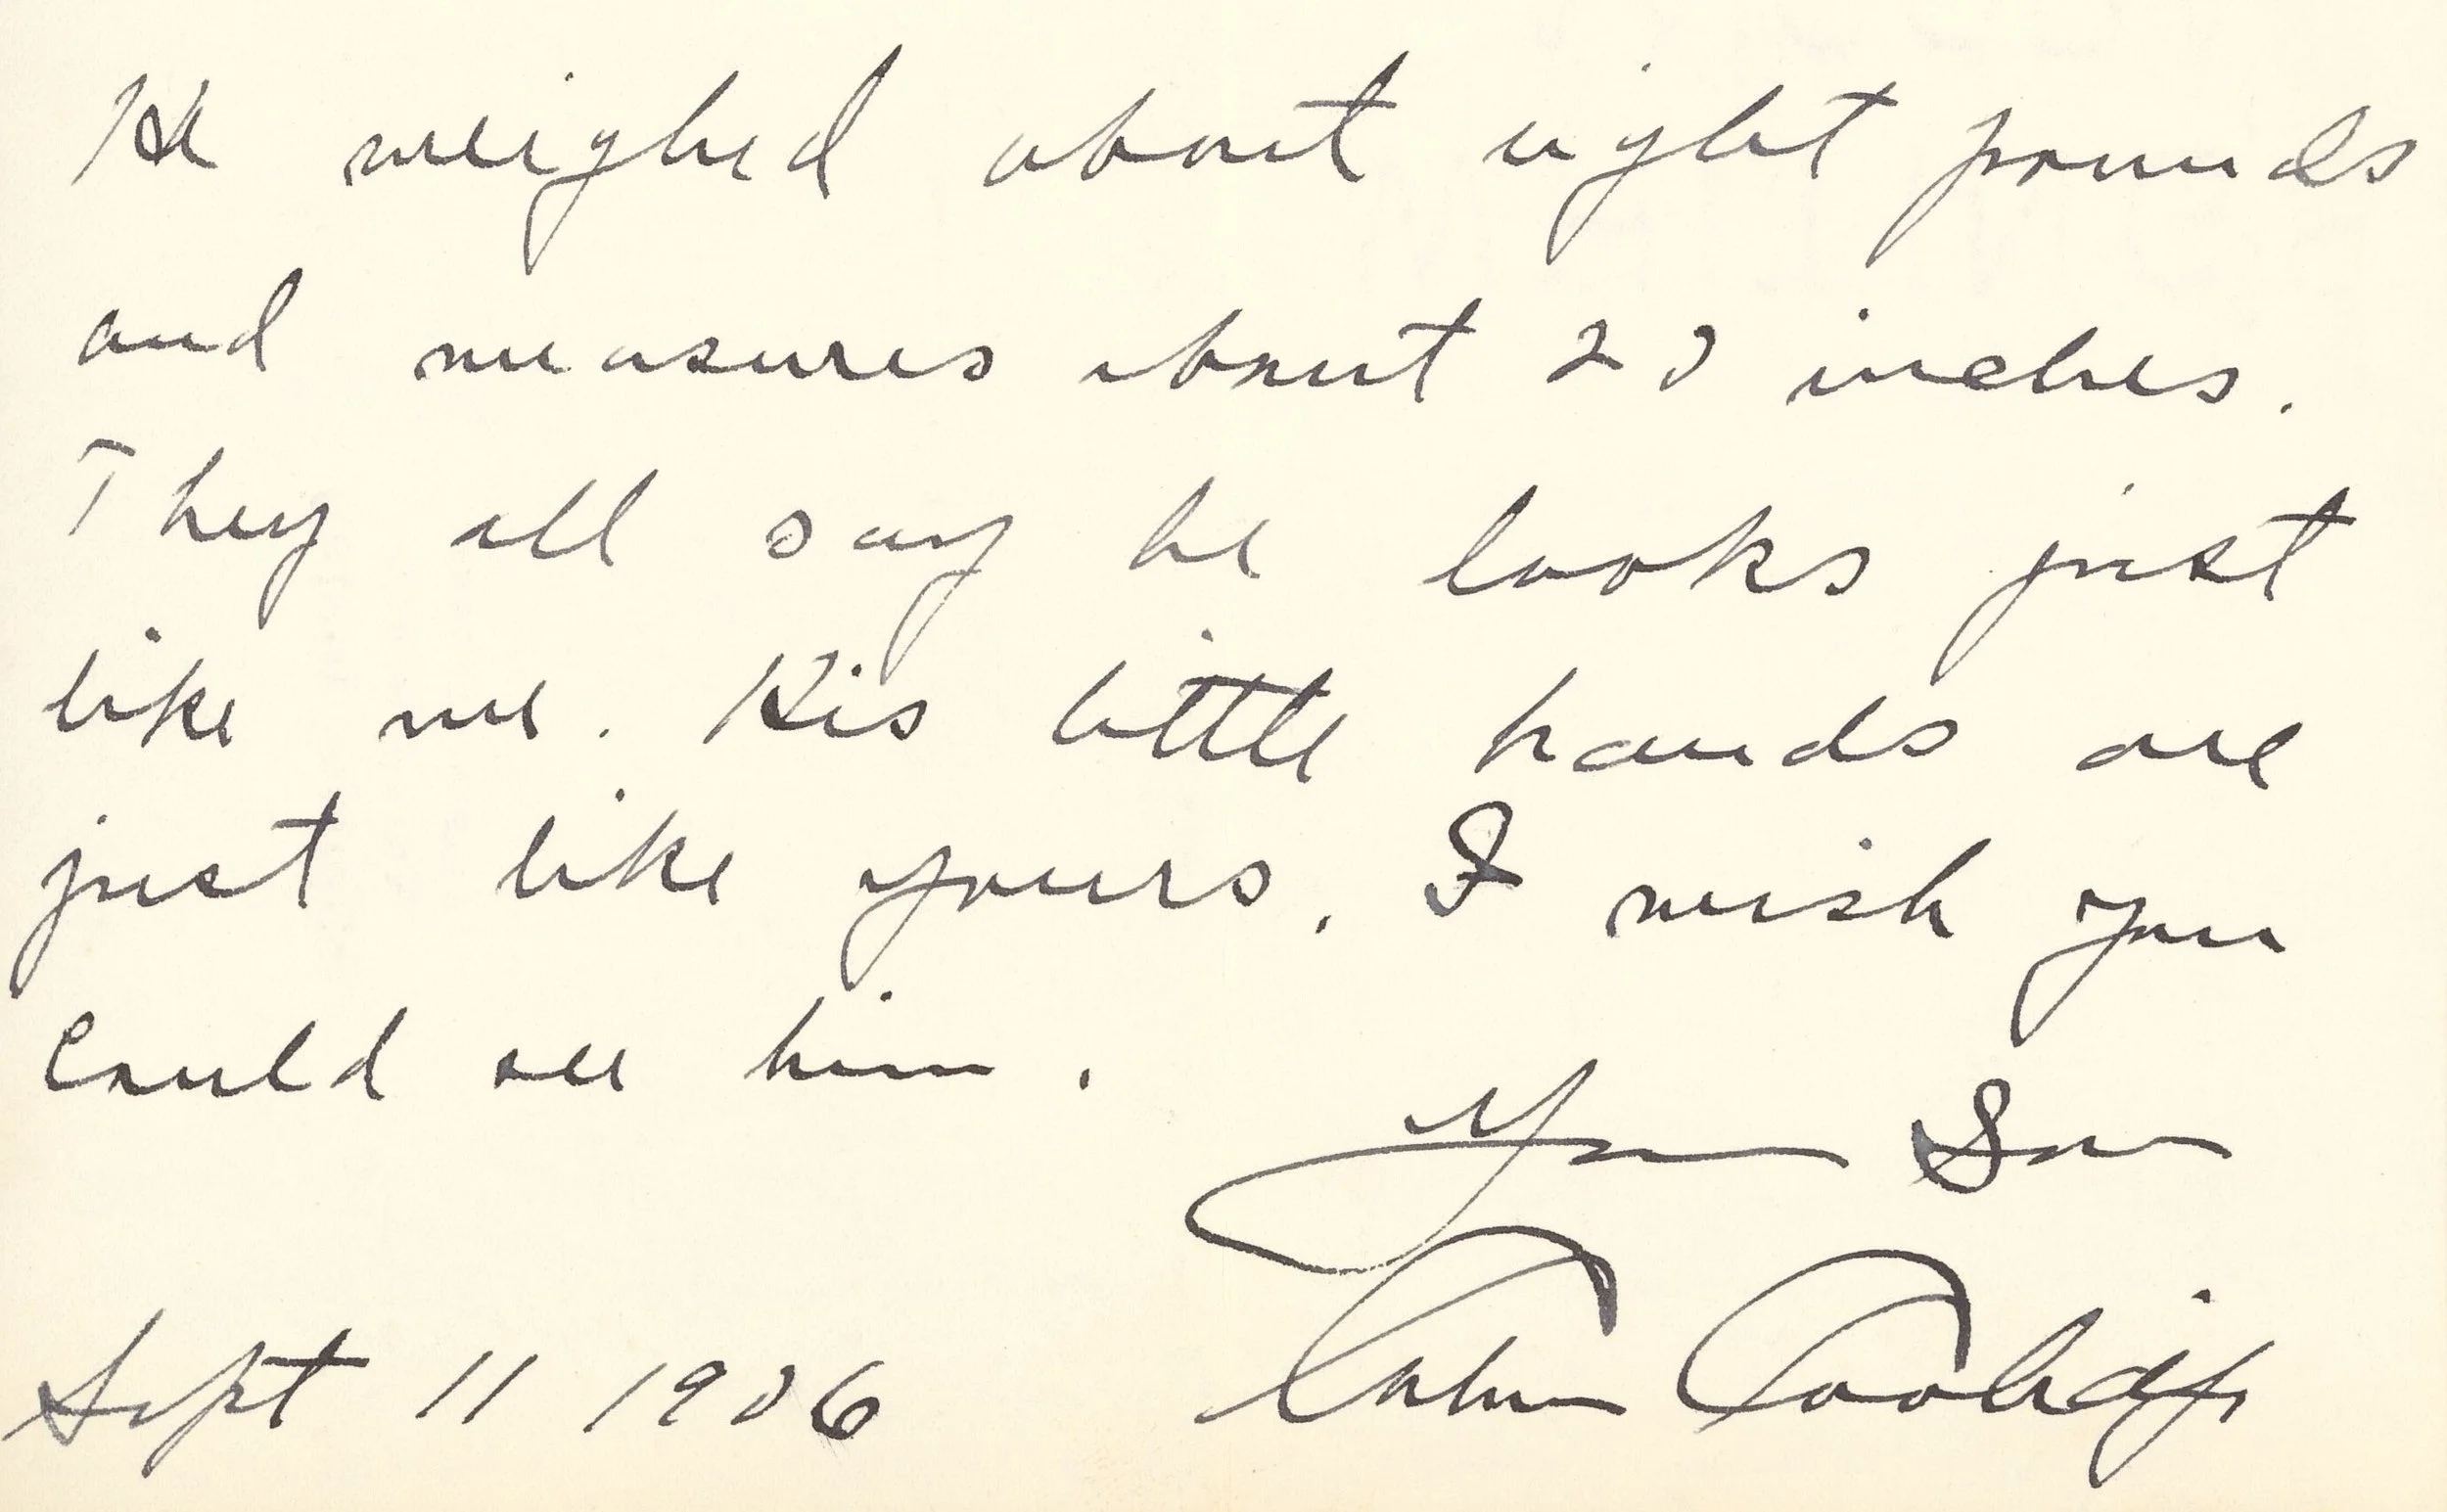 He weighed about eight pounds
and measures about 20 inches.
They all say he looks just
like me. His little hands are
just like yours. I wish you
could see him.
Your Son
Calvin Coolidge
Sept 11 1906